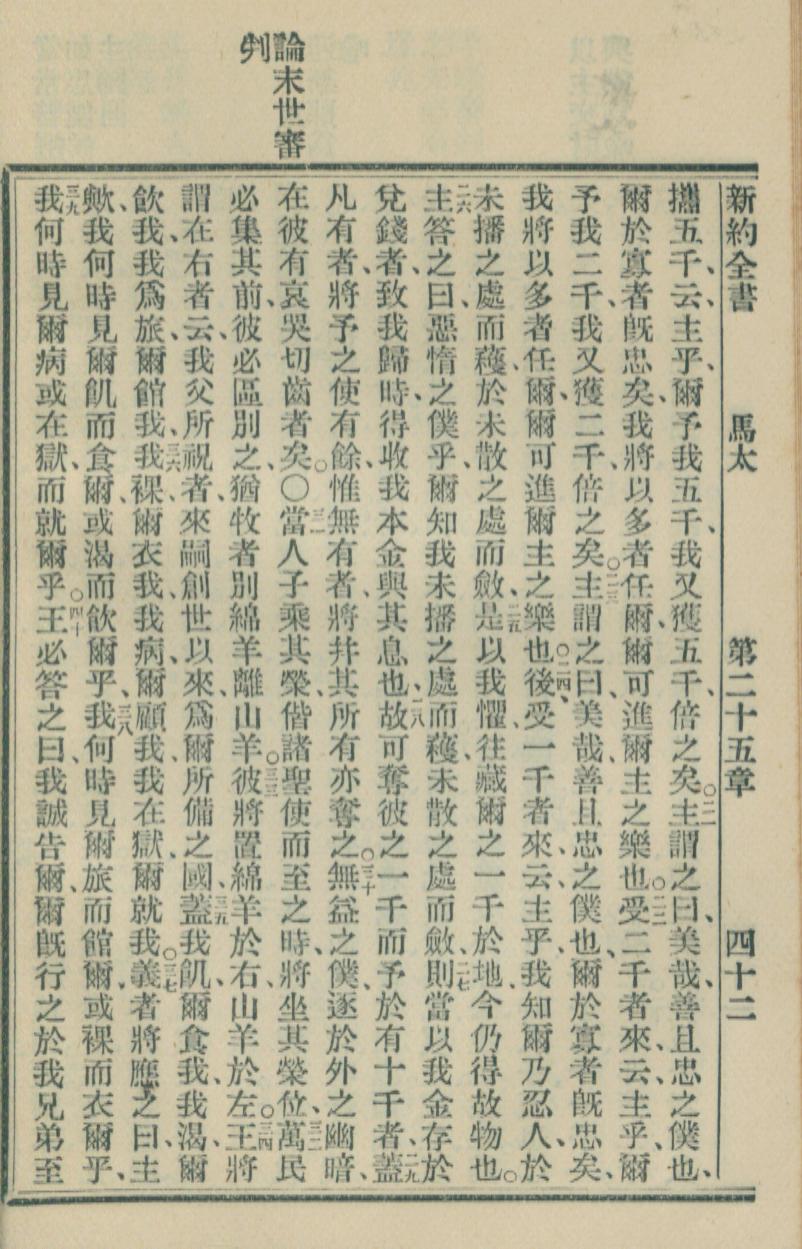 新約全書　馬太　第二十五章　四十二
攜五千、云、主乎、爾予我五千、我又獲五千、倍之矣。二一主謂之曰、美哉、善且忠之僕也、
爾於寡者旣忠矣、我將以多者任爾、爾可進爾主之樂也。二二受二千者來、云、主乎、爾
予我二千、我又獲二千、倍之矣。二三主謂之曰、美哉、善且忠之僕也、爾於寡者旣忠矣、
我將以多者任爾、爾可進爾主之樂也。二四後受一千者來、云、主乎、我知爾乃忍人、於
未播之處而穫、於未散之處而斂、二五是以我懼、往藏爾之一千於地、今仍得故物也。
二六主答之曰、惡惰之僕乎、爾知我未播之處而穫、未散之處而斂、二七則當以我金存於
兌錢者、致我歸時、得收我本金與其息也、二八故可奪彼之一千而予於有十千者、二九蓋
凡有者、將予之使有餘、惟無有者、將幷其所有亦奪之。三十無益之僕、逐於外之幽暗、
在彼有哀哭切齒者矣。〇三一當人子乘其榮、偕諸聖使而至之時、將坐其榮位、三二萬民
必集其前、彼必區別之、猶牧者別綿羊離山羊。三三彼將置綿羊於右、山羊於左。三四王將
謂在右者云、我父所祝者、來嗣創世以來、爲爾所備之國、三五蓋我飢、爾食我、我渴、爾
飲我、我爲旅、爾館我、三六我裸、爾衣我、我病、爾顧我、我在獄、爾就我。三七義者將應之曰、主
歟、我何時見爾飢而食爾、或渴而飲爾乎、三八我何時見爾旅而館爾、或裸而衣爾乎、
三九我何時見爾病或在獄、而就爾乎。四十王必答之曰、我誠告爾、爾旣行之於我兄弟至
論末世審
判